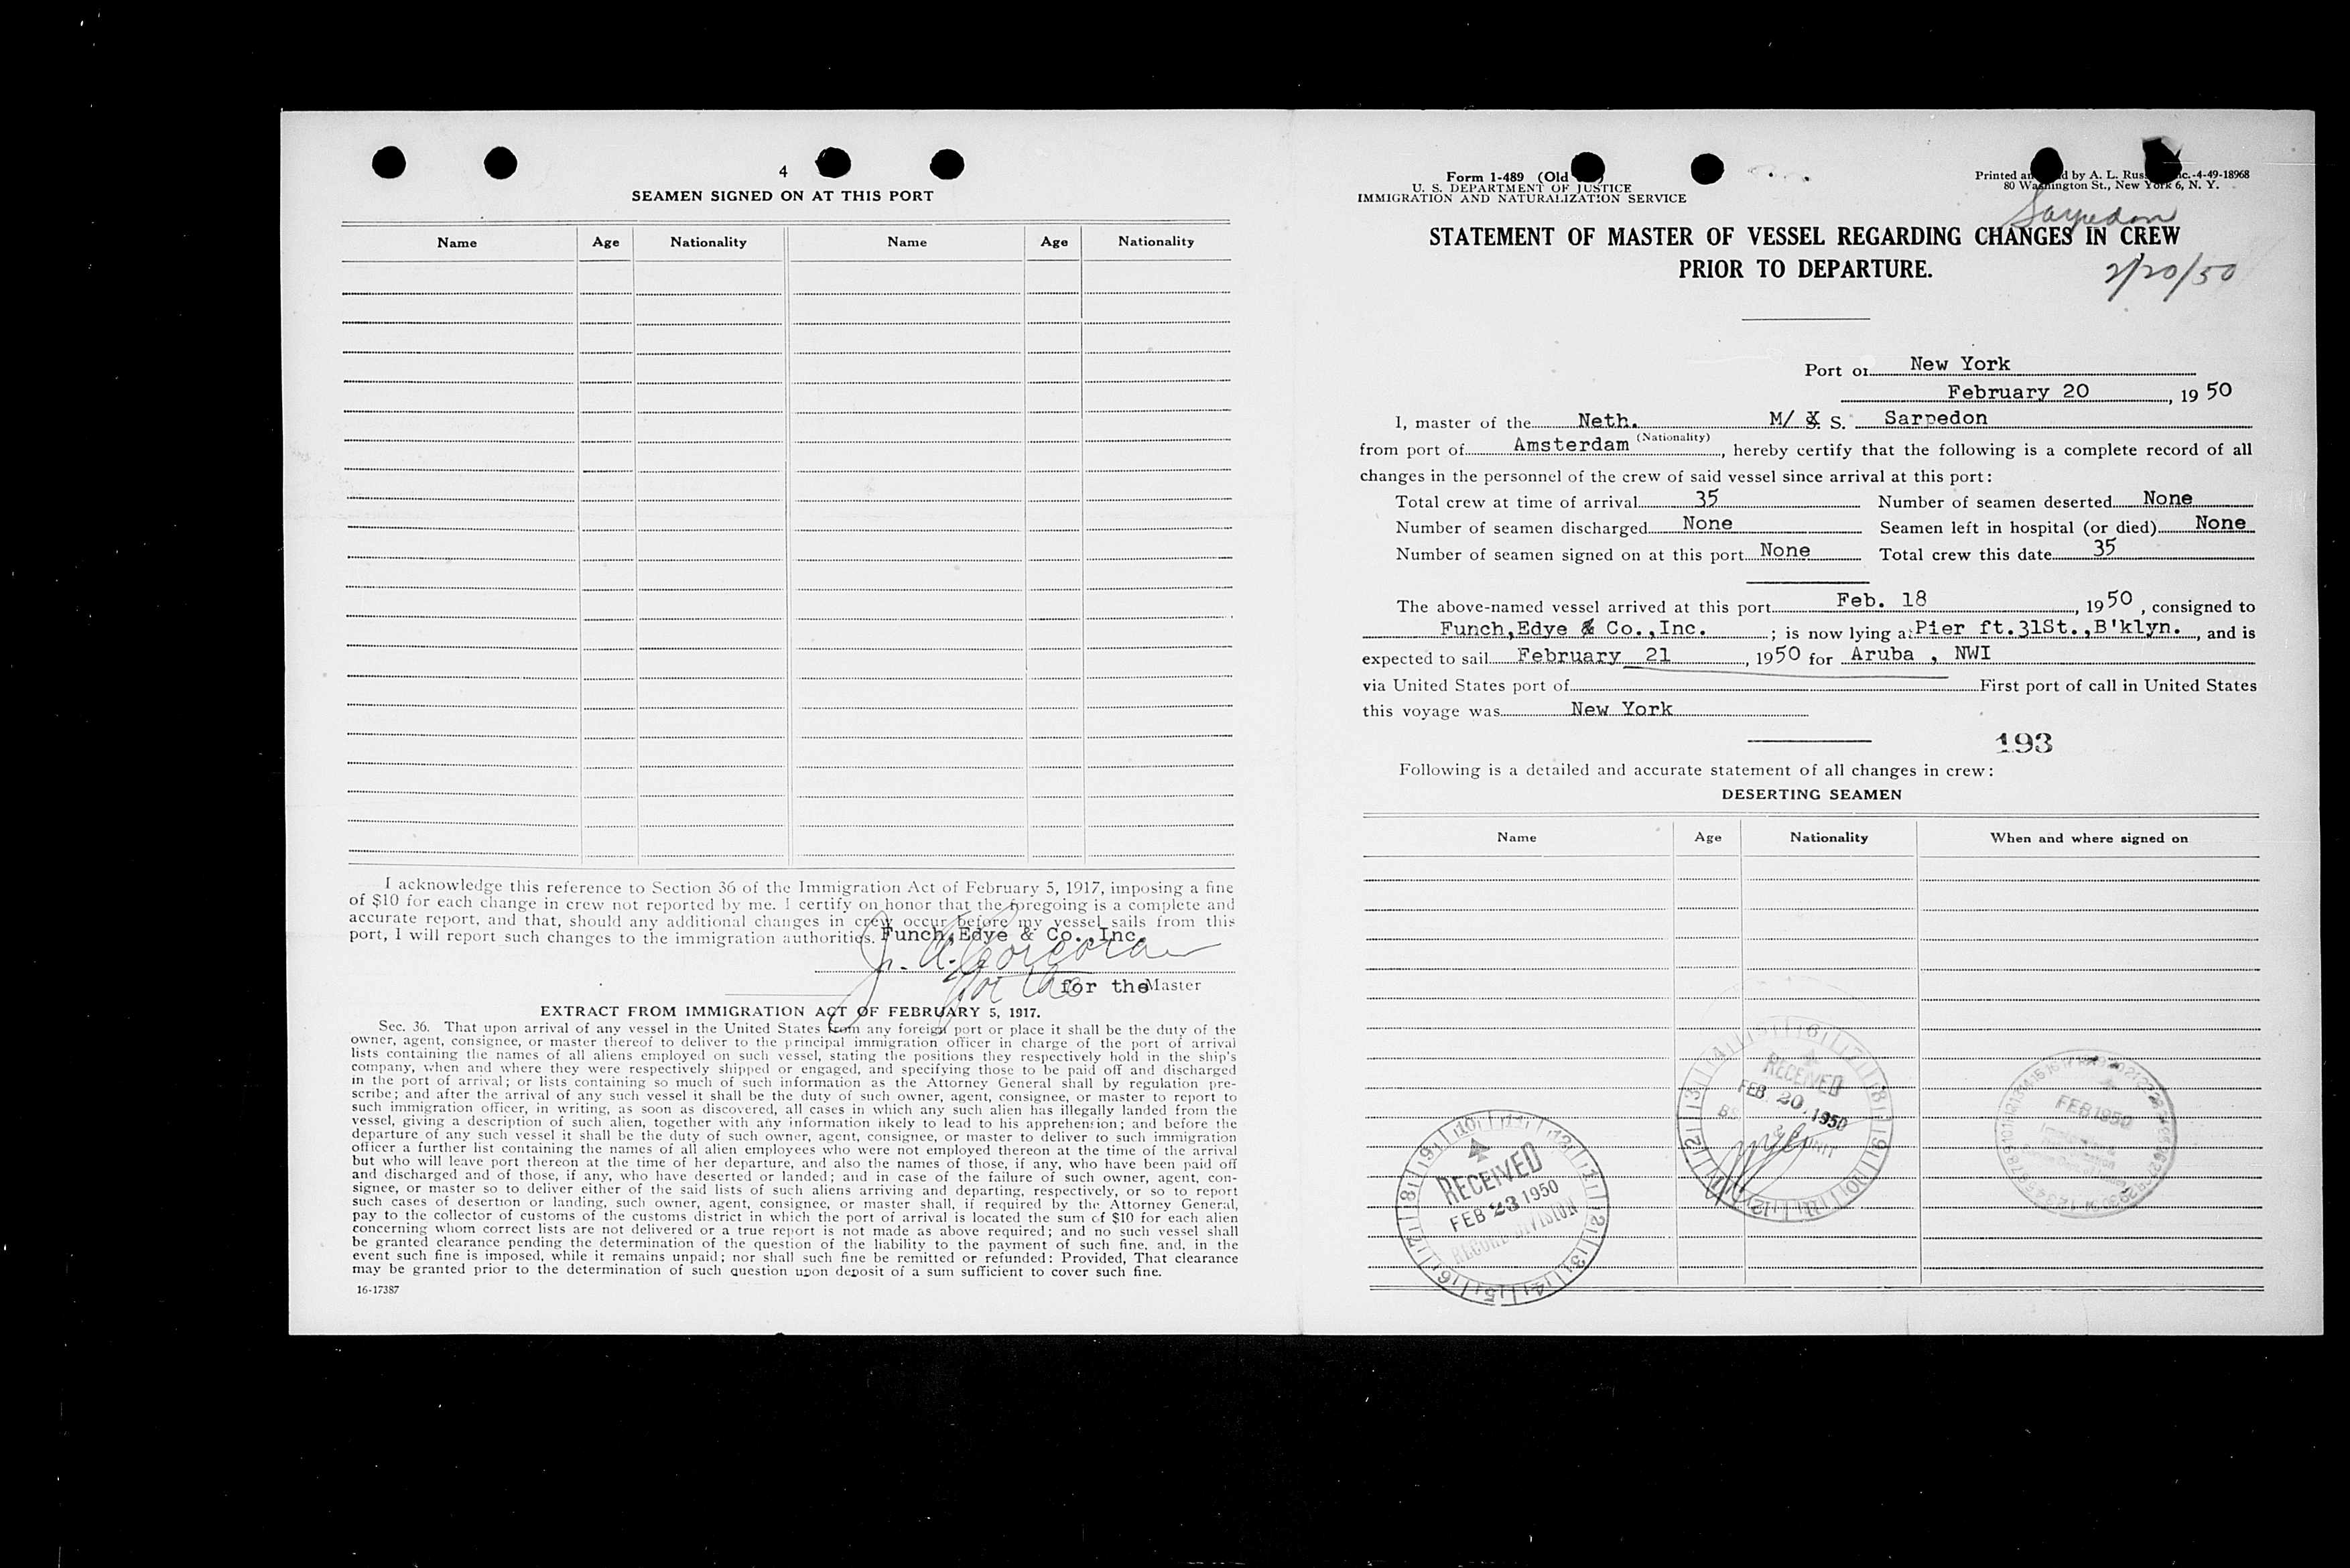 4
SEAMEN SIGNED ON AT THIS PORT
Name Age Nationality Name Age Nationality
I acknowledge this reference to Section 36 of the Immigration Act of February 5, 1917, imposing a fine
of $10 for each change in crew not reported by me. I certify on honor that the foregoing is a complete and
accurate report, and that, should any additional changes in crew occur before my vessel sails from this
port, I will report such changes to the immigration authorities. Funch,Edye & Co.,Inc.
for the Master
EXTRACT FROM IMMIGRATION ACT OF FEBRUARY 5, 1917.
Sec. 36. That upon arrival of any vessel in the United States from any foreign port or place it shall be the duty of the
owner, agent, consignee, or master thereof to deliver to the principal immigration officer in charge of the port of arrival
lists containing the names of all aliens employed on such vessel, stating the positions they respectively hold in the ship's
company, when and where they were respectively shipped or engaged, and specifying those to be paid off and discharged
in the port of arrival; or lists containing so much of such information as the Attorney General shall by regulation pre-
scribe; and after the arrival of any such vessel it shall be the duty of such owner, agent, consignee, or master to report to
such immigration officer, in writing, as soon as discovered, all cases in which any such alien has illegally landed from the
vessel, giving a description of such alien, together with any information likely to lead to his apprehension; and before the
departure of any such vessel it shall be the duty of such owner, agent, consignee, or master to deliver to such immigration
officer a further list containing the names of all alien employees who were not employed thereon at the time of the arrival
but who will leave port thereon at the time of her departure, and also the names of those, if any, who have been paid off
and discharged and of those, if any, who have deserted or landed; and in case of the failure of such owner, agent, con-
signee, or master so to deliver either of the said lists of such aliens arriving and departing, respectively, or so to report
such cases of desertion or landing, such owner, agent, consignee, or master shall, if required by the Attorney General,
pay to the collector of customs of the customs district in which the port of arrival is located the sum of $10 for each alien
concerning whom correct lists are not delivered or a true report is not made as above required; and no such vessel shall
be granted clearance pending the determination of the question of the liability to the payment of such fine, and, in the
event such fine is imposed, while it remains unpaid; nor shall such fine be remitted or refunded: Provided, That clearance
may be granted prior to the determination of such question upon deposit of a sum sufficient to cover such fine.
16-17387
Form 1-489 (Old
U. S. DEPARTMENT OF JUSTICE
IMMIGRATION AND NATURALIZATION SERVICE
Printed by A. L. 4-49-18968
80 Washington St., New York 6, N. Y.
Sarpedon
STATEMENT OF MASTER OF VESSEL REGARDING CHANGES IN CREW
PRIOR TO DEPARTURE.
2/20/50
Port of New York
February 20, 1950
I, master of the Neth. M/ S. Sarpedon
(Nationality)
from port of Amsterdam, hereby certify that the following is a complete record of all
changes in the personnel of the crew of said vessel since arrival at this port:
Total crew at time of arrival 35 Number of seamen deserted None
Number of seamen discharged None Seamen left in hospital (or died) None
Number of seamen signed on at this port None Total crew this date 35
The above-named vessel arrived at this port Feb. 18, 1950, consigned to
Funch,Edye & Co.,Inc.; is now lying at Pier ft.31St.,B'klyn., and is
expected to sail February 21, 1950 for Aruba , NWI
via United States port of First port of call in United States
this voyage was New York
193
Following is a detailed and accurate statement of all changes in crew:
DESERTING SEAMEN
Name Age Nationality When and where signed on
RECEIVED
FEB 20 1950
FEB 1950
RECEIVED
FEB 23 1950
RECORD DIVISION